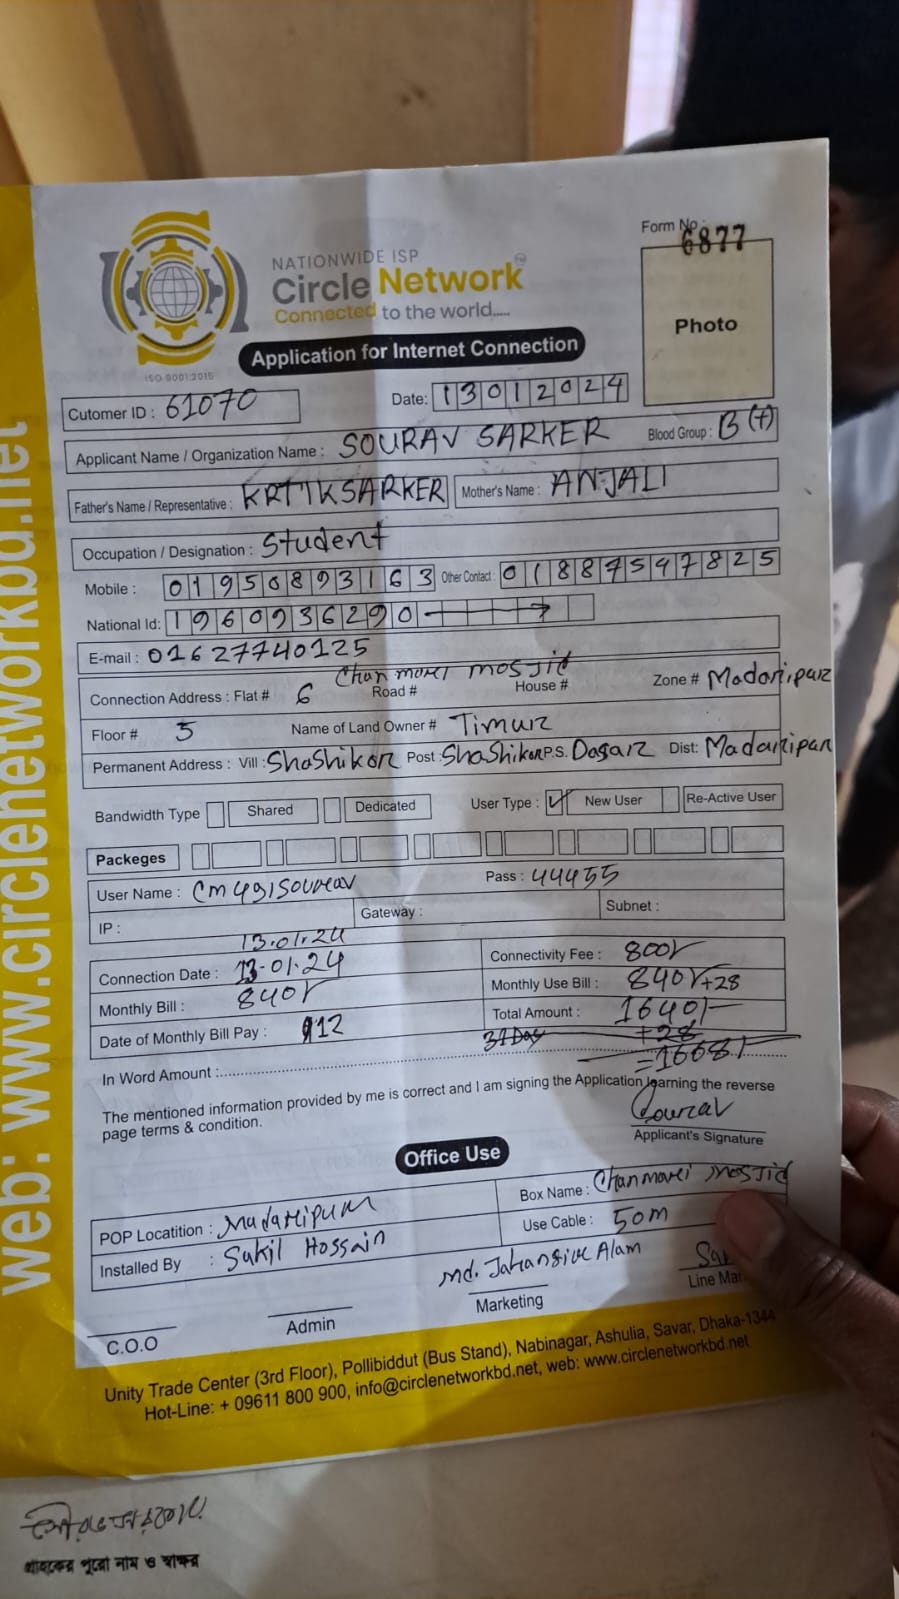 web: www.circlenetworkbd.net
Form No : 6877
NATIONWIDE ISP
Circle Network
Connected to the world.....
ISO 9001:2015
Photo
Application for Internet Connection
Cutomer ID : 61070 Date: 13012024
Applicant Name / Organization Name : SOURAV SARKER Blood Group : B (+)
Father's Name / Representative : KRTIKSARKER Mother's Name : ANJALI
Occupation / Designation : Student
Mobile : 01950893163 Other Contact : 01887547825
National Id: 1960936290
E-mail : 01627740125
Chanmovei mosjid
Connection Address : Flat # 6 Road # House # Zone # Madaripur
Floor # 5 Name of Land Owner # Timur
Permanent Address : Vill : Shashikor Post : Shashikor P.S. Dasar Dist: Madaripar
Bandwidth Type Shared Dedicated User Type : New User Re-Active User
Packeges
User Name : Pass : 44455
IP : Gateway : Subnet :
13.01.24
Connection Date : 13.01.24 Connectivity Fee : 800/
Monthly Bill : 840/ Monthly Use Bill : 840/+28
Date of Monthly Bill Pay : 12 Total Amount : 1640/-
+28
=1668/
In Word Amount :
The mentioned information provided by me is correct and I am signing the Application learning the reverse
page terms & condition.
Sourav
Applicant's Signature
Office Use
POP Locatition : Madaripur Box Name : Chanmovei mosjid
Installed By : Sakil Hossain Use Cable : 50m
Md. Jahangire Alam
C.O.O Admin Marketing Line Man
Unity Trade Center (3rd Floor), Pollibiddut (Bus Stand), Nabinagar, Ashulia, Savar, Dhaka-1344
Hot-Line: + 09611 800 900, info@circlenetworkbd.net, web: www.circlenetworkbd.net
গ্রাহকের পুরো নাম ও স্বাক্ষর